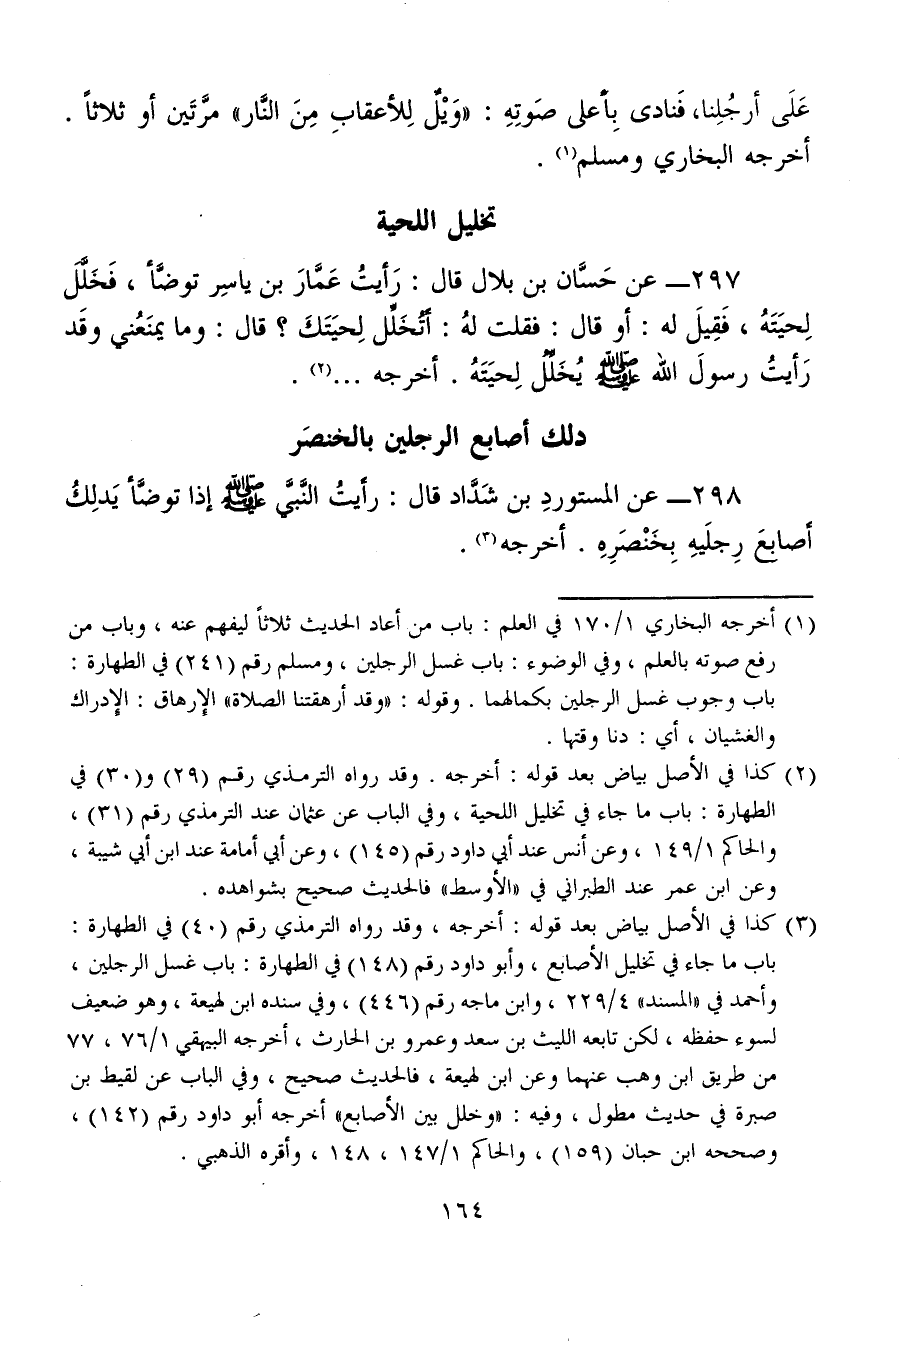 عَلَى أرجُلِنا، فَنادى بِأَعلى صَوتِهِ : «وَيْلٌ لِلأعقابِ مِنَ النَّار» مرَّتَين أو ثلاثاً .
أخرجه البخاري ومسلم(١) .
تخليل اللحية
٢٩٧ـ عن حَسَّان بن بلال قال : رَأيتُ عَمَّارَ بن ياسِر توضَّأ ، فَخَلَّلَ
لِحيَتَهُ ، فَقِيلَ له : أو قال : فقلت لهُ : أَتُخَلِّل لِحيَتَكَ ؟ قال : وما يمنَعُني وقَد
رَأيتُ رسولَ الله ﷺ يُخَلِّلُ لِحيَتَهُ . أخرجه ...(٢) .
دلك أصابع الرجلين بالخنصَر
٢٩٨ـ عن المستوردِ بن شَدَّاد قال : رأيتُ النَّبيَّ ﷺ إذا توضَّأ يَدلِكُ
أصابِعَ رِجلَيهِ بِخَنْصَرِهِ . أخرجه(٣) .
(١) أخرجه البخاري ١٧٠/١ في العلم : باب من أعاد الحديث ثلاثاً ليفهم عنه ، وباب من
رفع صوته بالعلم ، وفي الوضوء : باب غسل الرجلين ، ومسلم رقم (٢٤١) في الطهارة :
باب وجوب غسل الرجلين بكمالهما . وقوله : «وقد أرهقتنا الصلاة» الإرهاق : الإدراك
والغشيان ، أي : دنا وقتها .
(٢) كذا في الأصل بياض بعد قوله : أخرجه . وقد رواه الترمذي رقم (٢٩) و(٣٠) في
الطهارة : باب ما جاء في تخليل اللحية ، وفي الباب عن عثمان عند الترمذي رقم (٣١) ،
والحاكم ١٤٩/١ ، وعن أنس عند أبي داود رقم (١٤٥) ، وعن أبي أمامة عند ابن أبي شيبة ،
وعن ابن عمر عند الطبراني في «الأوسط» فالحديث صحيح بشواهده .
(٣) كذا في الأصل بياض بعد قوله : أخرجه ، وقد رواه الترمذي رقم (٤٠) في الطهارة :
باب ما جاء في تخليل الأصابع ، وأبو داود رقم (١٤٨) في الطهارة : باب غسل الرجلين ،
وأحمد في «المسند» ٢٢٩/٤ ، وابن ماجه رقم (٤٤٦) ، وفي سنده ابن لهيعة ، وهو ضعيف
لسوء حفظه ، لكن تابعه الليث بن سعد وعمرو بن الحارث ، أخرجه البيهقي ٧٦/١ ، ٧٧
من طريق ابن وهب عنهما وعن ابن لهيعة ، فالحديث صحيح ، وفي الباب عن لقيط بن
صبرة في حديث مطول ، وفيه : «وخلل بين الأصابع» أخرجه أبو داود رقم (١٤٢) ،
وصححه ابن حبان (١٥٩) ، والحاكم ١٤٧/١ ، ١٤٨ ، وأقره الذهبي .
١٦٤